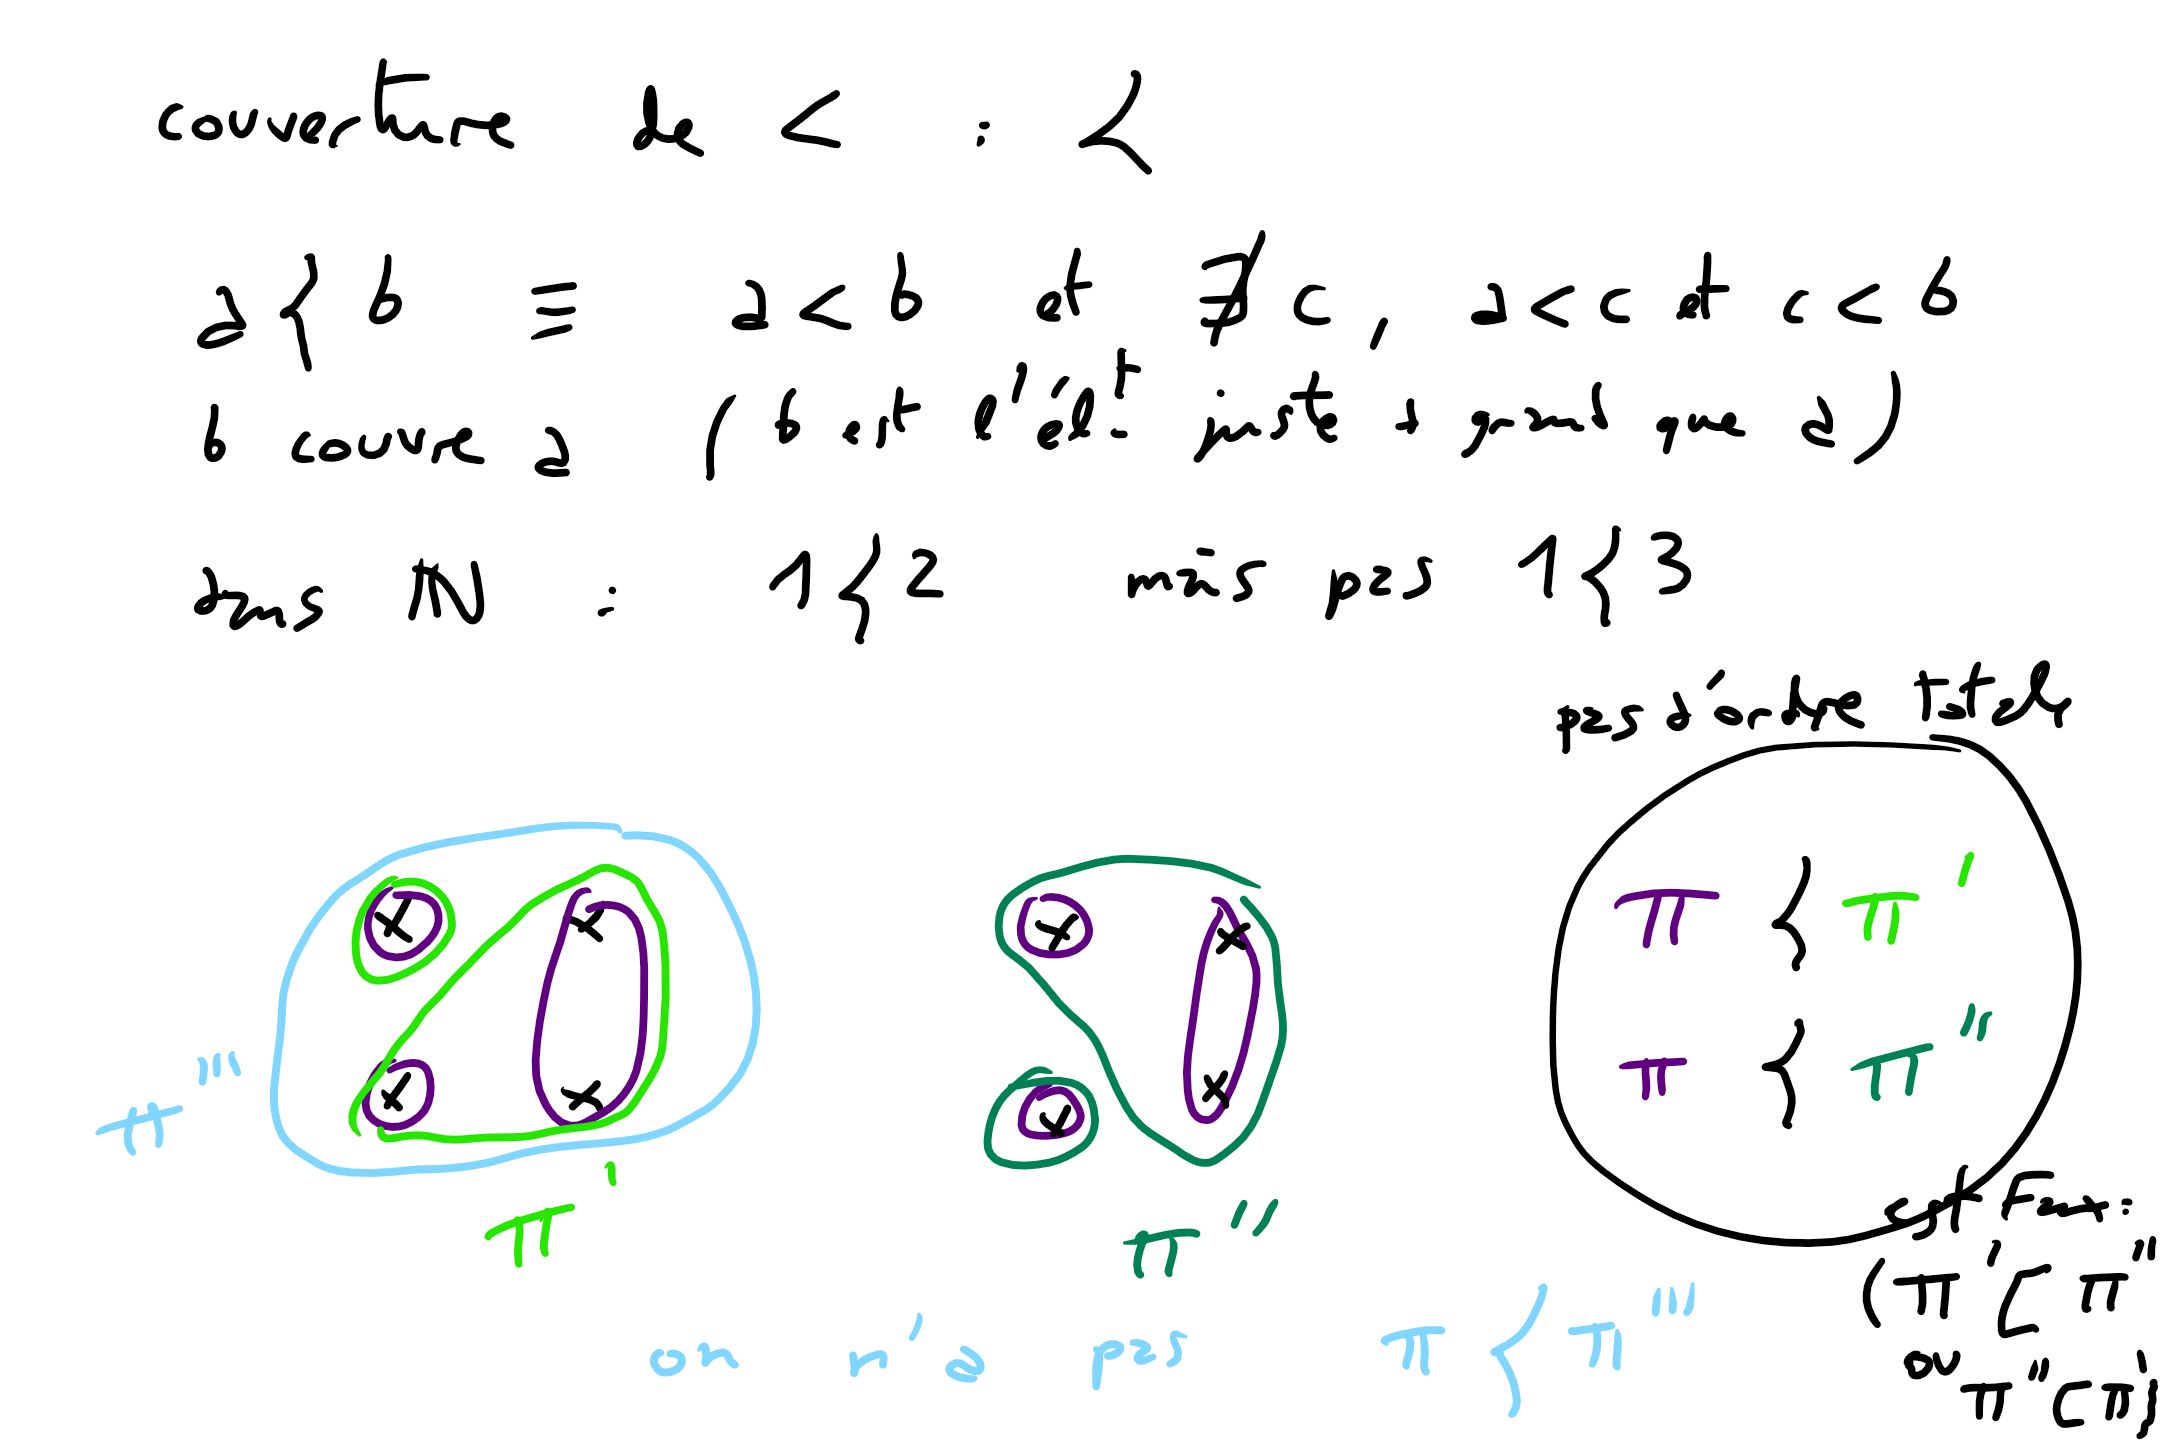 couverture de < : ≺
a ≺ b ≡ a < b et ∄ c, a < c et c < b
b couvre a (b est l'élt juste + grand que a)
dans ℕ : 1 ≺ 2 mais pas 1 ≺ 3
pas d'ordre total
π ≺ π'
π ≺ π''
π'''
π'
π''
est Faux :
(π' ⊏ π''
ou
π'' ⊏ π')
on n'a pas π ≺ π'''